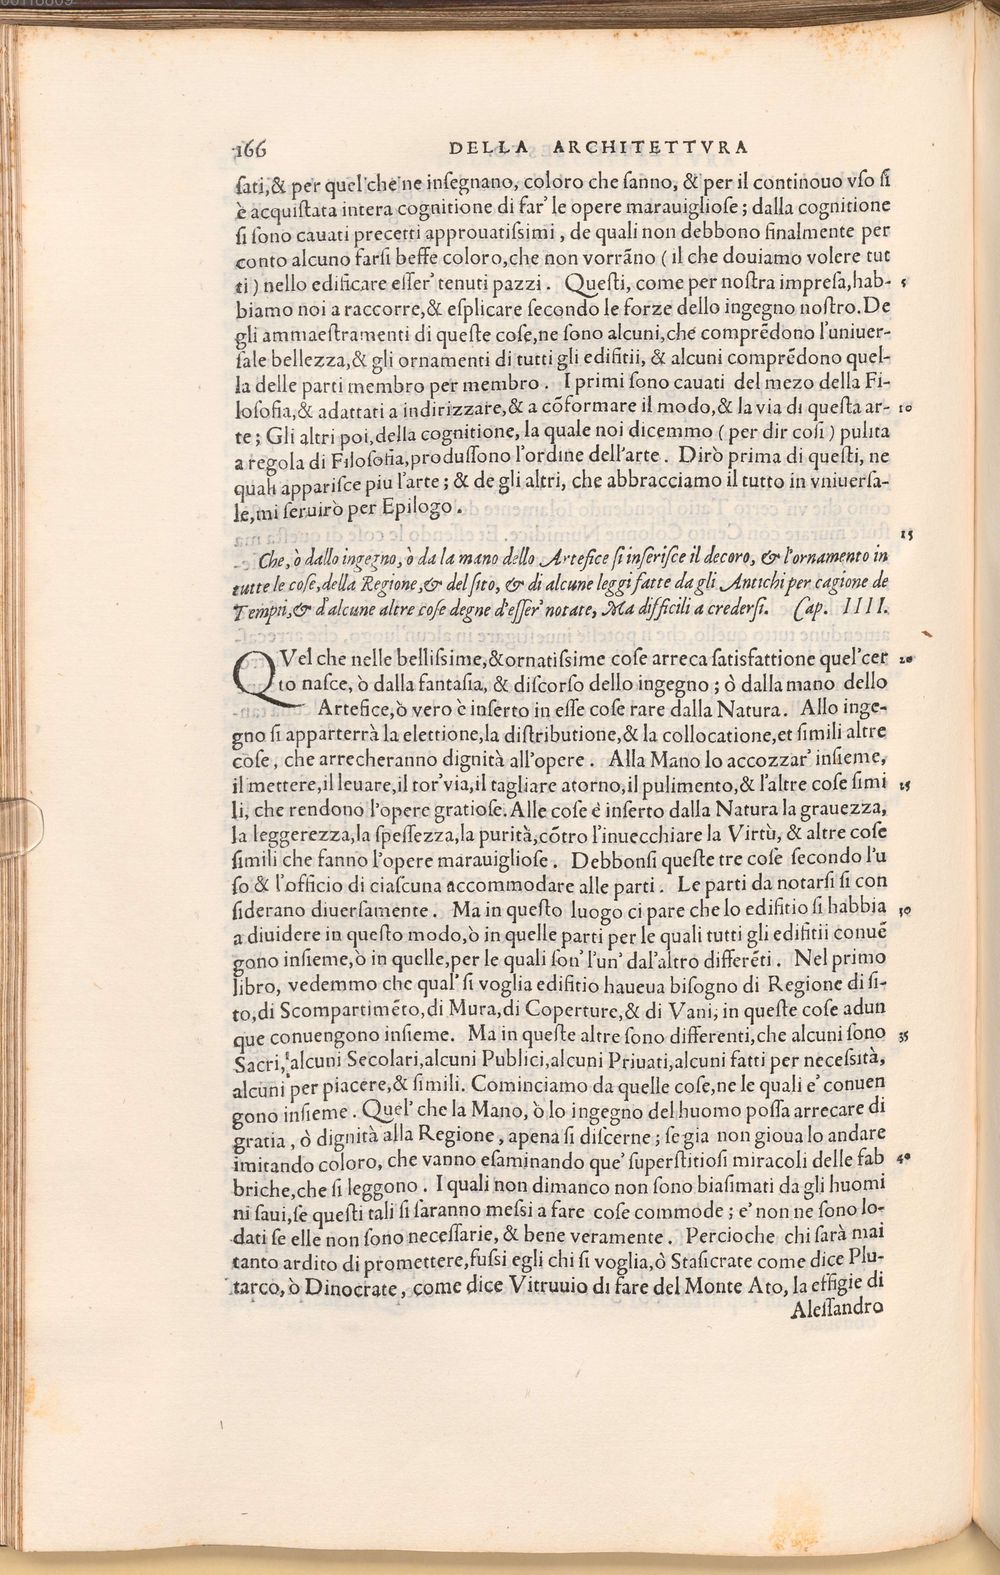 166 DELLA ARCHITETTVRA
ſati,& per quel che ne inſegnano, coloro che ſanno, & per il continouo vſo ſi
è acquiſtata intera cognitione di far' le opere marauiglioſe; dalla cognitione
ſi ſono cauati precetti approuatiſsimi, de quali non debbono finalmente per
conto alcuno farſi beffe coloro,che non vorrãno (il che douiamo volere tut
ti) nello edificare eſſer' tenuti pazzi. Queſti, come per noſtra impreſa,hab- 5
biamo noi a raccorre,& eſplicare ſecondo le forze dello ingegno noſtro.De
gli ammaeſtramenti di queſte coſe,ne ſono alcuni,che comprẽdono l'vniuer-
ſale bellezza,& gli ornamenti di tutti gli edifitii, & alcuni comprẽdono quel-
la delle parti membro per membro. I primi ſono cauati del mezo della Fi-
loſofia,& adattati a indirizzare,& a cõformare il modo,& la via di queſta ar- 10
te; Gli altri poi,della cognitione, la quale noi dicemmo (per dir coſi) pulita
a regola di Filoſofia,produſſono l'ordine dell'arte. Dirò prima di queſti, ne
quali appariſce piu l'arte; & de gli altri, che abbracciamo il tutto in vniuerſa-
le,mi ſeruirò per Epilogo.
15
Che, ò dallo ingegno, ò da la mano dello Artefice ſi inſeriſce il decoro, & l'ornamento in
tutte le coſe,della Regione,& del ſito, & di alcune leggi fatte da gli Antichi per cagione de
Tempii,& d'alcune altre coſe degne d'eſſer' notate, Ma difficili a crederſi. Cap. IIII.
QVel che nelle belliſsime,&ornatiſsime coſe arreca ſatisfattione quel'cer 20
to naſce, ò dalla fantaſia, & diſcorſo dello ingegno; ò dalla mano dello
Artefice,ò vero è inſerto in eſſe coſe rare dalla Natura. Allo inge-
gno ſi apparterrà la elettione,la diſtributione,& la collocatione,et ſimili altre
coſe, che arrecheranno dignità all'opere. Alla Mano lo accozzar' inſieme,
il mettere,il leuare,il tor'via,il tagliare atorno,il pulimento,& l'altre coſe ſimi 25
li, che rendono l'opere gratioſe. Alle coſe è inſerto dalla Natura la grauezza,
la leggerezza,la ſpeſſezza,la purità,cõtro l'inuecchiare la Virtù, & altre coſe
ſimili che fanno l'opere marauiglioſe. Debbonſi queſte tre coſe ſecondo l'u
ſo & l'officio di ciaſcuna accommodare alle parti. Le parti da notarſi ſi con
ſiderano diuerſamente. Ma in queſto luogo ci pare che lo edifitio ſi habbia 30
a diuidere in queſto modo,ò in quelle parti per le quali tutti gli edifitii conuẽ
gono inſieme,ò in quelle,per le quali ſon' l'un' dal'altro differẽti. Nel primo
libro, vedemmo che qual' ſi voglia edifitio haueua biſogno di Regione di ſi-
to,di Scompartimẽto,di Mura,di Coperture,& di Vani; in queſte coſe adun
que conuengono inſieme. Ma in queſte altre ſono differenti,che alcuni ſono 35
Sacri, alcuni Secolari,alcuni Publici,alcuni Priuati,alcuni fatti per neceſsità,
alcuni per piacere,& ſimili. Cominciamo da quelle coſe,ne le quali e' conuen
gono inſieme. Quel' che la Mano, ò lo ingegno del huomo poſſa arrecare di
gratia, ò dignità alla Regione, apena ſi diſcerne; ſe gia non gioua lo andare
imitando coloro, che vanno eſaminando que' ſuperſtitioſi miracoli delle fab 40
briche,che ſi leggono. I quali non dimanco non ſono biaſimati da gli huomi
ni ſaui,ſe queſti tali ſi ſaranno meſsi a fare coſe commode; e' non ne ſono lo-
dati ſe elle non ſono neceſſarie, & bene veramente. Percioche chi ſarà mai
tanto ardito di promettere,fuſsi egli chi ſi voglia,ò Staſicrate come dice Plu-
tarco, ò Dinocrate, come dice Vitruuio di fare del Monte Ato, la effigie di
Aleſſandro